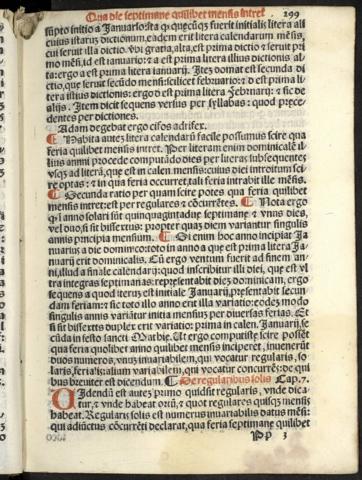 Qua die septimane quilibet mensis intret 299
sũpto initio a Januario: ita ꝙ quecũqꝫ fuerit initialis litera ali
cuius istarũ dictionum, eadem erit litera calendarum mēsis,
cui seruit illa dictio. Vbi gratia, alta, est prima dictio ⁊ seruit pri
mo mēsi, id est ianuario: ⁊ a est prima litera illius dictionis al-
ta: ergo a est prima litera ianuarij. Itez domat est secunda di
ctio, que seruit secūdo mensi scilicet februario: ⁊ d est prima li-
tera illius dictionis: ergo d est prima litera Februarij: ⁊ sic de
alijs. Item dicit sequens versus per syllabas: quod prece-
dentes per dictiones.
Adam degebat ergo cifos adrifex.
Habita autez litera calendarũ facile possumus scire qua
feria quilibet mensis intret. Per literam enim dominicalē il-
lius anni procede computādo dies per literas subsequentez
vsqꝫ ad literā, que est in calen. mensis: cuius diei introitum sci-
re optas: ⁊ in qua feria occurret, tali feria intrabit ille mēsis.
Secunda ratio per quam scire potes qua feria quilibet
mensis intret: est per regulares ⁊ cōcurrētes. Nota ergo
ꝙ anno solari sũt quinquagintadue septimane ⁊ vnus dies,
vel duo, si sit bissextus: propter quaz diem variantur singulis
annis principia mensium. Si enim hoc anno incipiat Ja
nuarius a die dominico: toto in anno a que est prima litera Ja-
nuarij erit dominicalis. Cū ergo ventum fuerit ad finem an-
ni, illud a finale calendarij: quod inscribitur illi diei, que est vl
tra integras septimanas: representabit diez dominicam, ergo
sequens a quod iterum est initiale Januarij, presentabit secun
dam feriam: ⁊ sic toto illo anno erit illa variatio: eodez modo
singulis annis variātur initia mensium per diuersas ferias. Et
si sit bissextus duplex erit variatio: prima in calen. Januarij, se
cũda in festo sancti Mathie. Ut ergo compotiste scire possēt
qua feria quolibet anno quilibet mensis inciperet, inuenerũt
duos numeros, vnũ inuariabilem, qui vocatur regularis, so
laris, feria̓lis: alium variabilem, qui vocatur concurrēs: de qui
bus breuiter est dicendum. De regularibus solis Cap. 7.
Uidendũ est autez primo quid sit regularis, vnde dica
tur, ⁊ vnde habeat ortũ, ⁊ quot regulares quisqꝫ mensis
habeat. Regularis solis est numerus inuariabilis datus mēsi:
qui adiũctus cōcurrēti declarat, qua feria septimane quilibet
Pp 3